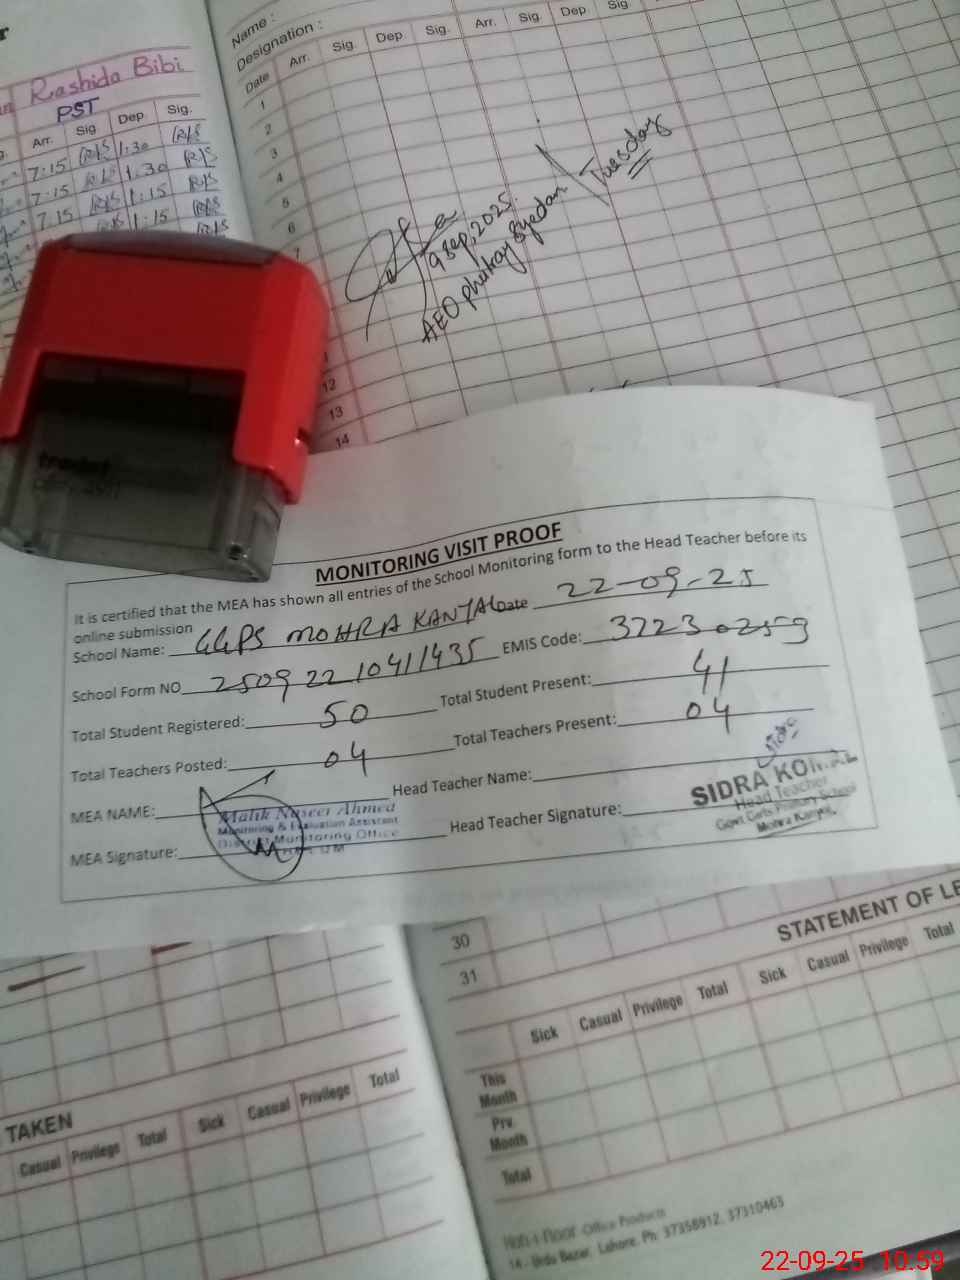 Rashida Bibi
PST
Arr. Sig Dep Sig.
7:15 R/S 1:30 R/S
7:15 R/S 1:30 R/S
7:15 R/S 1:15 R/S
R/S 1:15 R/S
R/S
Name :
Designation :
Date Arr. Sig. Dep Sig. Arr. Sig. Dep. Sig
1
2
3
4
5
6
7
12
13
14
9 Sep, 2025.
AEO phukay Syedan
Tuesday
trodat
MONITORING VISIT PROOF
It is certified that the MEA has shown all entries of the School Monitoring form to the Head Teacher before its
online submission
School Name: GGPS MOHRA KANYAL Date 22-09-25
School Form NO 250922 10411435 EMIS Code: 37230259
Total Student Registered: 50 Total Student Present: 41
Total Teachers Posted: 04 Total Teachers Present: 04
MEA NAME: Head Teacher Name:
Malik Naseer Ahmed
Monitoring & Evaluation Assistant
District Monitoring Office
MEA Signature: Head Teacher Signature:
SIDRA
Head Teacher
Govt Girls Primary School
Mohra Kanyal
30
31
STATEMENT OF
Sick Casual Privilege Total Sick Casual Privilege Total
This
Month
Prv.
Month
Total
TAKEN
Casual Privilege Total Sick Casual Privilege Total
Office Products
14 - Urdu Bazar, Lahore. Ph: 37358912, 37310463
22-09-25 10:59